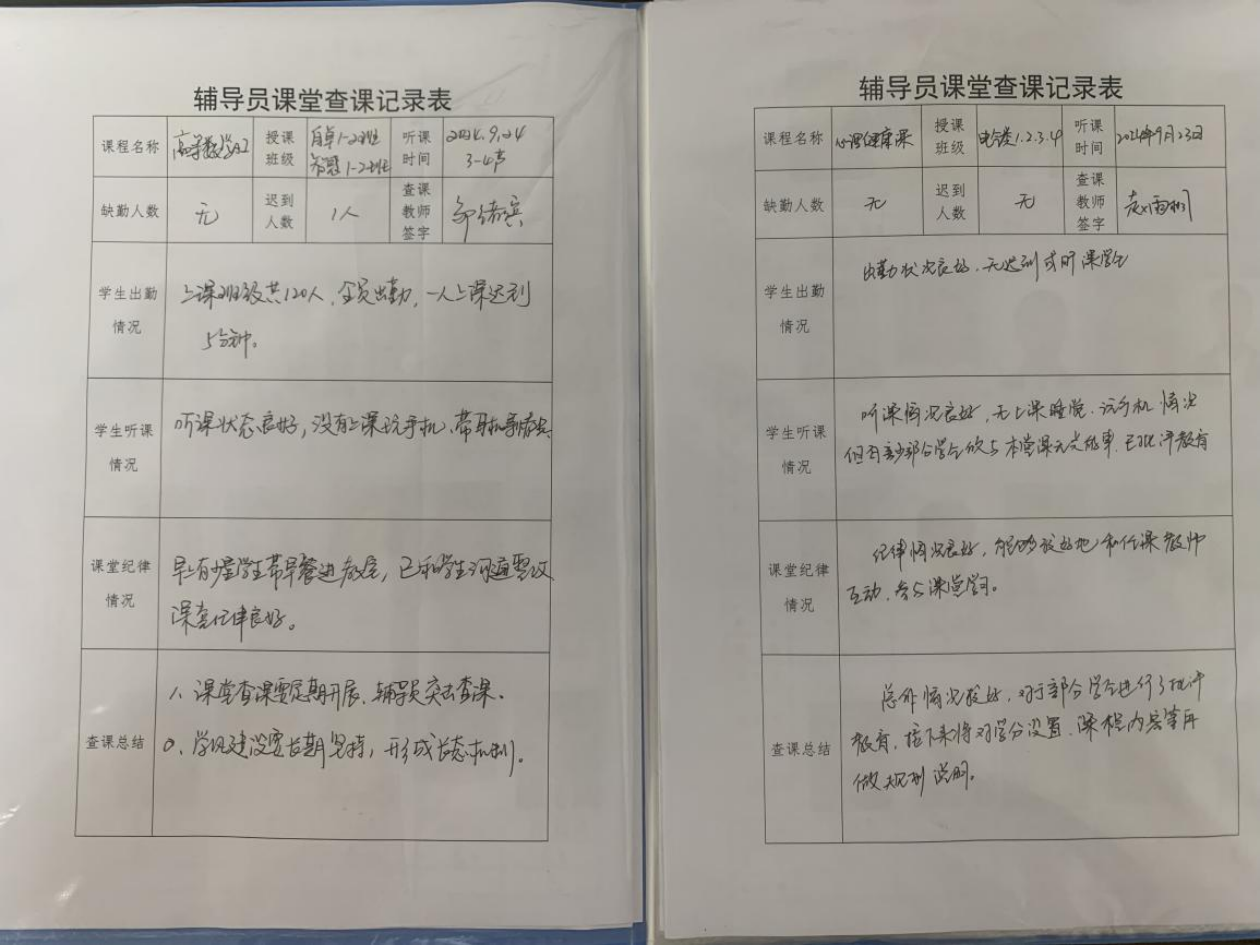 辅导员课堂查课记录表
课程名称 高等数学A2 授课班级 自卓1-2班 听课时间 2024.9.24
智慧1-2班 3-4节
缺勤人数 无 迟到人数 1人 查课教师签字
学生出勤情况 上课班级共120人，全员出勤，一人上课迟到
5分钟。
学生听课情况 听课状态良好，没有上课玩手机、带耳机等
课堂纪律情况 早上有少量学生带早餐进教室，已和学生沟通要改
课堂纪律良好。
查课总结 1、课堂查课要定期开展、辅导员突击查课。
2、学风建设要长期坚持，形成长态机制。
辅导员课堂查课记录表
课程名称 心理健康课 授课班级 电气类1.2.3.4 听课时间 2024年9月23日
缺勤人数 无 迟到人数 无 查课教师签字
学生出勤情况 出勤状况良好，无迟到或旷课学生
学生听课情况 听课情况良好，无上课睡觉、玩手机情况
但有部分学生做与本堂课无关的事，已批评教育
课堂纪律情况 纪律情况良好，能够较好地和任课教师
互动，参与课堂学习。
查课总结 总体情况较好，对于部分学生进行了批评
教育，接下来将对学分设置、课程内容等再
做规划说明。